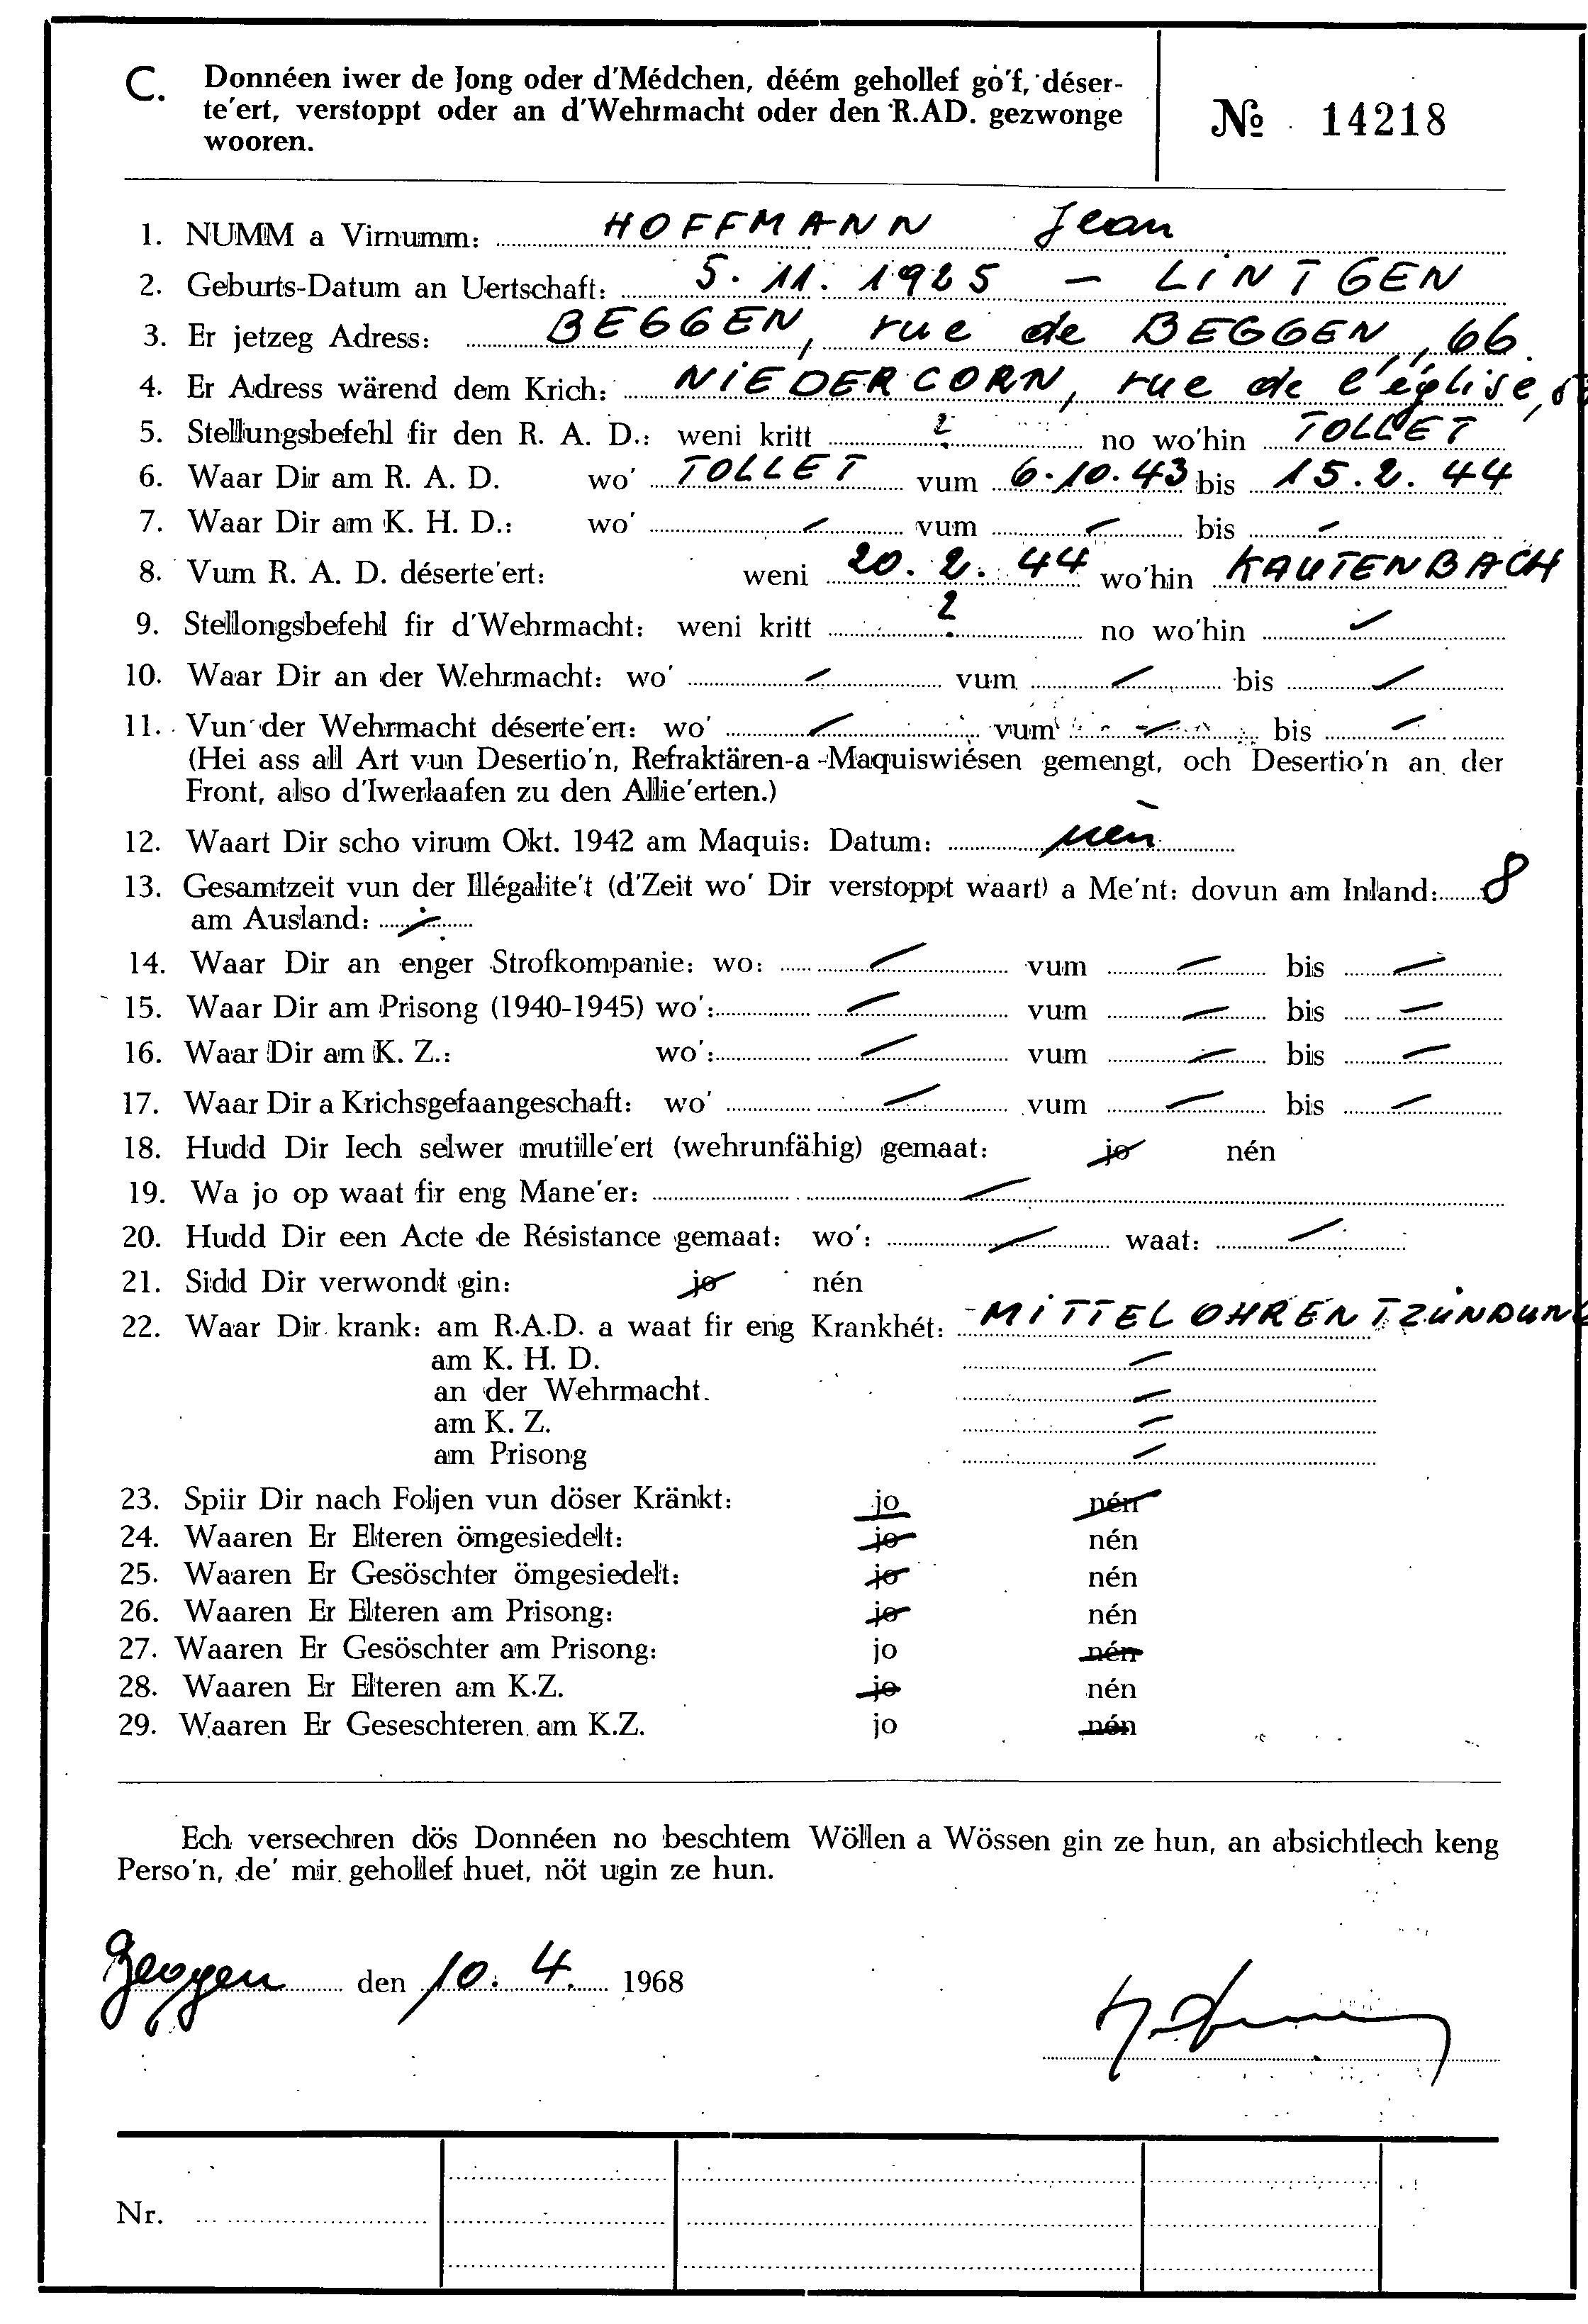 C. Donnéen iwer de Jong oder d'Médchen, déém gehollef go'f, déser-
te'ert, verstoppt oder an d'Wehrmacht oder den R.AD. gezwonge
wooren.
№ 14218
1. NUMM a Virnumm: HOFFMANN Jean
2. Geburts-Datum an Uertschaft: 5. 11. 1925 - LINTGEN
3. Er jetzeg Adress: BEGGEN, rue de BEGGEN, 66.
4. Er Adress wärend dem Krich: NIEDERCORN, rue de l'église,
5. Stellungsbefehl fir den R. A. D.: weni kritt ? no wo'hin TOLLET
6. Waar Dir am R. A. D. wo' TOLLET vum 6.10.43 bis 15.2.44
7. Waar Dir am K. H. D.: wo' - vum - bis -
8. Vum R. A. D. déserte'ert: weni 20.2.44 wo'hin KAUTENBACH
9. Stellongsbefehl fir d'Wehrmacht: weni kritt ? no wo'hin -
10. Waar Dir an der Wehrmacht: wo' - vum - bis -
11. Vun der Wehrmacht déserte'ert: wo' - vum - bis -
(Hei ass all Art vun Desertio'n, Refraktären-a-Maquiswiésen gemengt, och Desertio'n an der
Front, also d'Iwerlaafen zu den Allie'erten.)
12. Waart Dir scho virum Okt. 1942 am Maquis: Datum: nèn
13. Gesamtzeit vun der Illégalite't (d'Zeit wo' Dir verstoppt waart) a Me'nt: dovun am Inland: 8
am Ausland: -
14. Waar Dir an enger Strofkompanie: wo: - vum - bis -
15. Waar Dir am Prisong (1940-1945) wo': - vum - bis -
16. Waar Dir am K. Z.: wo': - vum - bis -
17. Waar Dir a Krichsgefaangeschaft: wo' - vum - bis -
18. Hudd Dir Iech selwer mutille'ert (wehrunfähig) gemaat: jo nén
19. Wa jo op waat fir eng Mane'er: -
20. Hudd Dir een Acte de Résistance gemaat: wo': - waat: -
21. Sidd Dir verwondt gin: jo nén
22. Waar Dir krank: am R.A.D. a waat fir eng Krankhét: MITTELOHRENTZÜNDUNG
am K. H. D. -
an der Wehrmacht. -
am K. Z. -
am Prisong -
23. Spiir Dir nach Foljen vun döser Kränkt: jo nén
24. Waaren Er Elteren ömgesiedelt: jo nén
25. Waaren Er Gesöschter ömgesiedelt: jo nén
26. Waaren Er Elteren am Prisong: jo nén
27. Waaren Er Gesöschter am Prisong: jo nén
28. Waaren Er Elteren am K.Z. jo nén
29. Waaren Er Geseschteren am K.Z. jo nén
Ech versechren dös Donnéen no beschtem Wöllen a Wössen gin ze hun, an absichtlech keng
Perso'n, de' mir gehollef huet, nöt ugin ze hun.
Beggen den 10. 4. 1968
Nr.